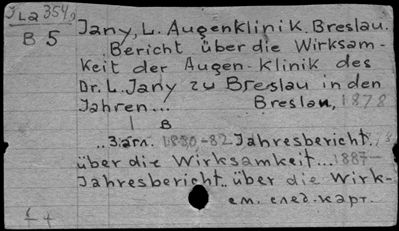 Jany, L. Augenklinik. Breslau.
B 5
Bericht über die Wirksam-
keit der Augen-Klinik des
Dr. L. Jany zu Breslau in den
Jahren... Breslau, 1878
I B
1880-82 Jahresbericht
über die Wirksamkeit... 1887-
Jahresbericht.. über die Wirk-
см. след. карт.